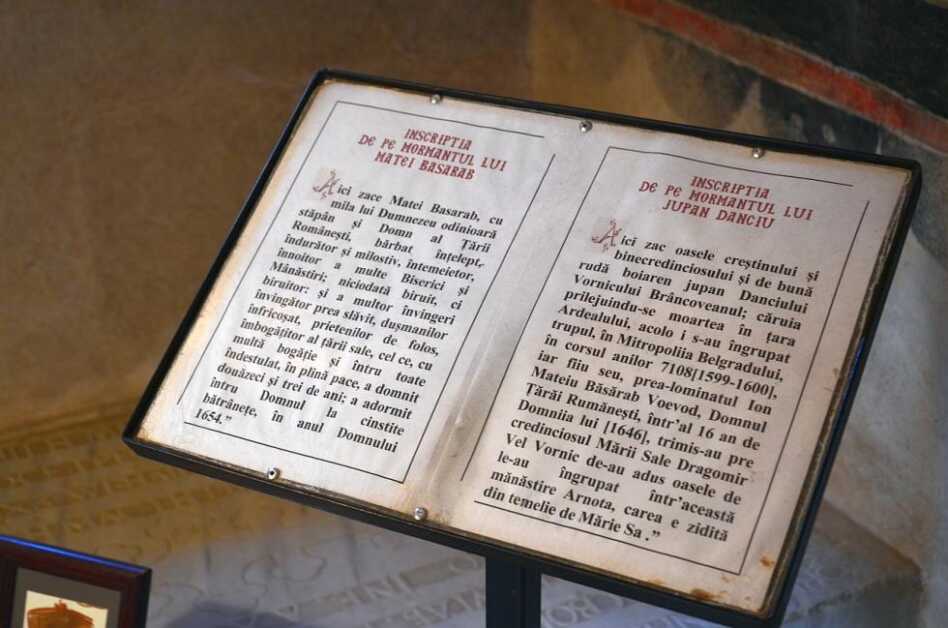 INSCRIPTIA
DE PE MORMANTUL LUI
MATEI BASARAB
Aici zace Matei Basarab, cu
mila lui Dumnezeu odinioară
stăpân și Domn al Țării
Românești, bărbat înțelept,
îndurător și milostiv, întemeietor,
înnoitor a multe Biserici și
Mânăstiri; niciodată biruit, ci
biruitor: și a multor învingeri
învingător prea slăvit, dușmanilor
înfricoșat, prietenilor de folos,
îmbogățitor al țării sale, cel ce, cu
multă bogăție și întru toate
îndestulat, în plină pace, a domnit
douăzeci și trei de ani; a adormit
întru Domnul la cinstite
bătrânețe, în anul Domnului
1654.”
INSCRIPTIA
DE PE MORMANTUL LUI
JUPAN DANCIU
Aici zac oasele creștinului și
binecredinciosului și de bună
rudă boiaren jupan Danciului
Vornicului Brâncoveanul; căruia
prilejuindu-se moartea în țara
Ardealului, acolo i s-au îngrupat
trupul, în Mitropoliia Belgradului,
în corsul anilor 7108[1599-1600],
iar fiiu seu, prea-lominatul Ion
Mateiu Băsărab Voevod, Domnul
Țărăi Rumânești, într’al 16 an de
Domniia lui [1646], trimis-au pre
credinciosul Mării Sale Dragomir
Vel Vornic de-au adus oasele de
le-au îngrupat într’această
mănăstire Arnota, carea e zidită
din temelie de Mărie Sa .”